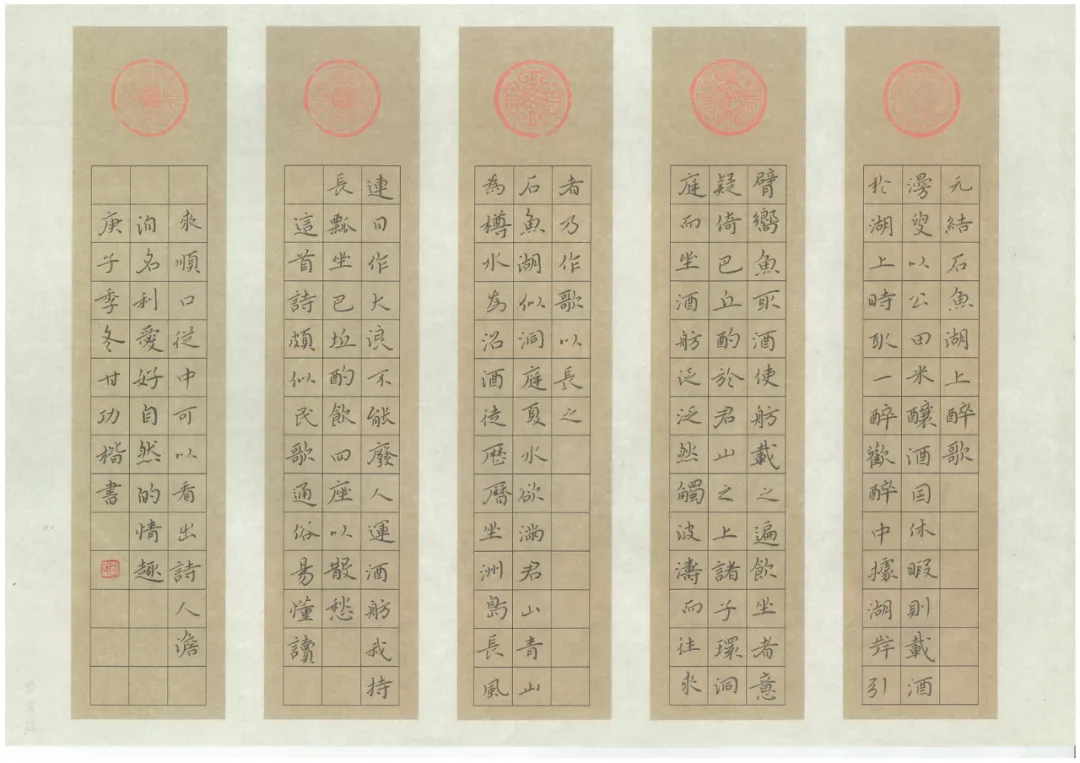 元結石魚湖上醉歌
漫叟以公田米釀酒因休暇則載酒
於湖上時取一醉歡醉中據湖岸引
臂嚮魚取酒使舫載之遍飲坐者意
疑倚巴丘酌於君山之上諸子環洞
庭而坐酒舫泛泛然觸波濤而往來
者乃作歌以長之
石魚湖似洞庭夏水欲滿君山青山
為樽水為沼酒徒歷歷坐洲島長風
連日作大浪不能廢人運酒舫我持
長瓢坐巴坵酌飲四座以散愁
這首詩頗似民歌通俗易懂讀
來順口從中可以看出詩人澹
泊名利愛好自然的情趣
庚子季冬甘功楷書